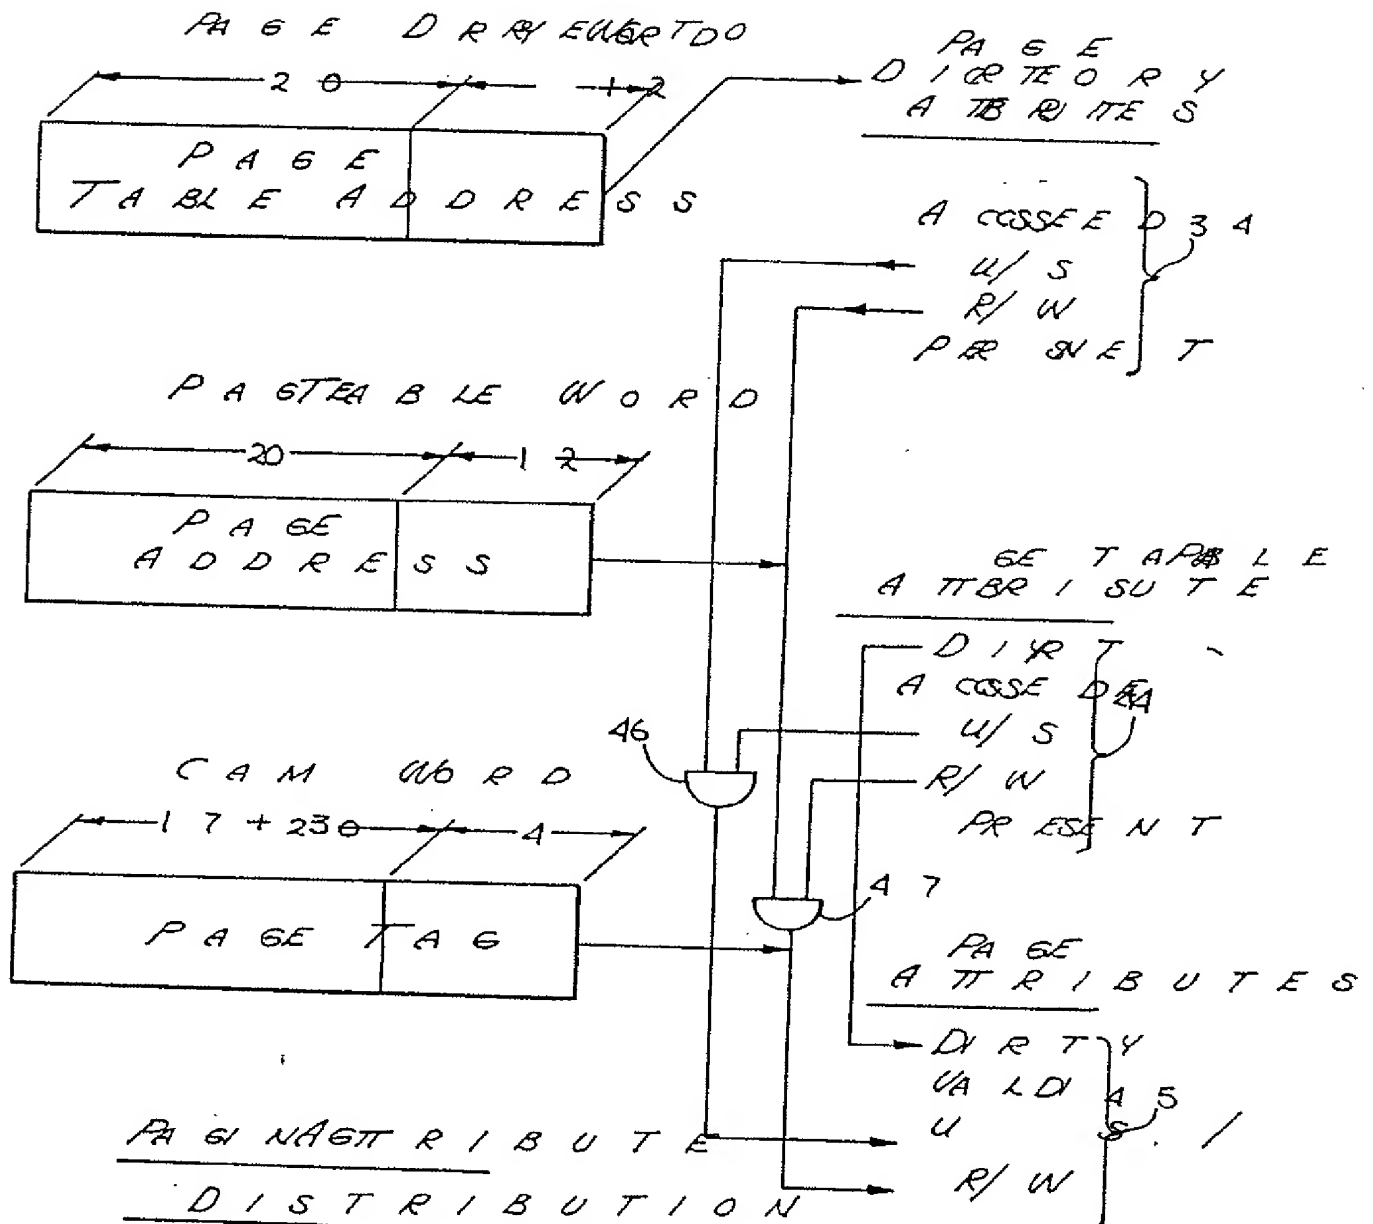 PAGE DIRECTORY WORD
20 12
PAGE
TABLE ADDRESS
PAGE
DIRECTORY
ATTRIBUTES
ACCESSED
U/S
R/W
PRESENT
34
PAGE TABLE WORD
20 12
PAGE
ADDRESS
PAGE TABLE
ATTRIBUTES
DIRTY
ACCESSED
U/S
R/W
PRESENT
46
CAM WORD
4
PAGE TAG
47
PAGE
ATTRIBUTES
DIRTY
VALID
U/S
R/W
45
PAGING ATTRIBUTE
DISTRIBUTION